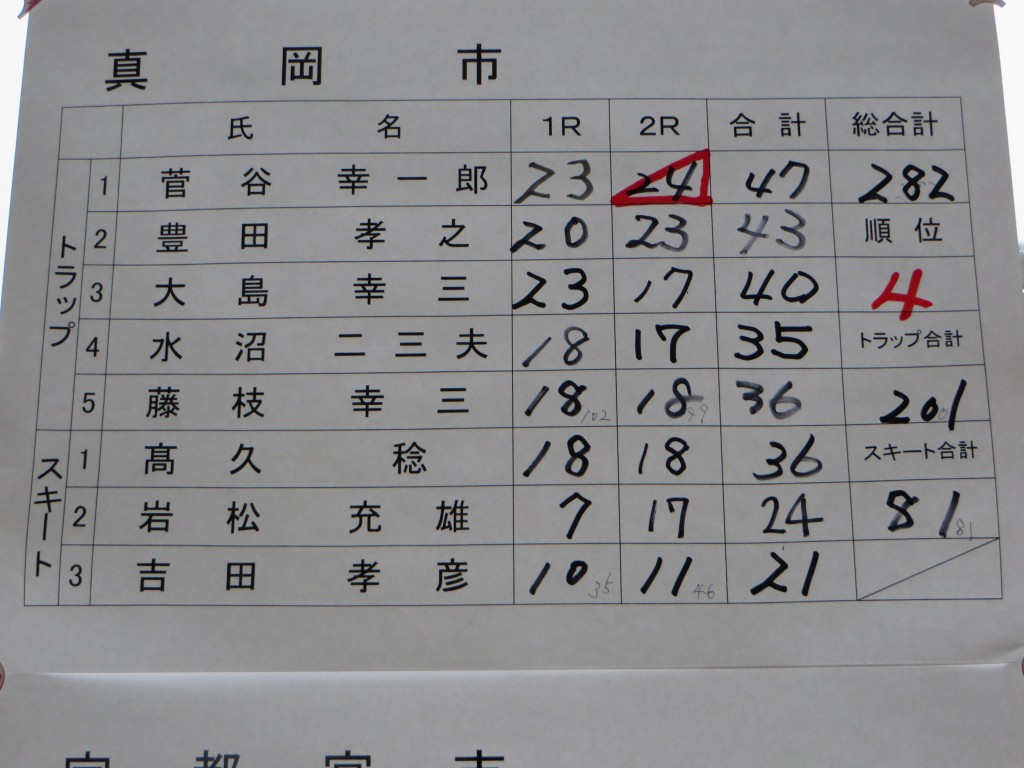 真岡市
氏名 1R 2R 合計 総合計
トラップ 1 菅谷幸一郎 23 24 47 282
2 豊田孝之 20 23 43 順位
3 大島幸三 23 17 40 4
4 水沼二三夫 18 17 35 トラップ合計
5 藤枝幸三 18 102 18 99 36 201
スキート 1 髙久稔 18 18 36 スキート合計
2 岩松充雄 7 17 24 81 81
3 吉田孝彦 10 35 11 46 21
宇都宮市